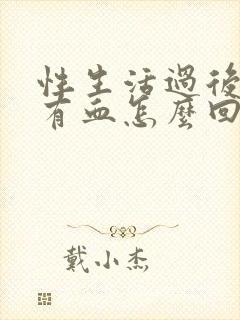 性生活過後
有血怎麼回
戴小杰